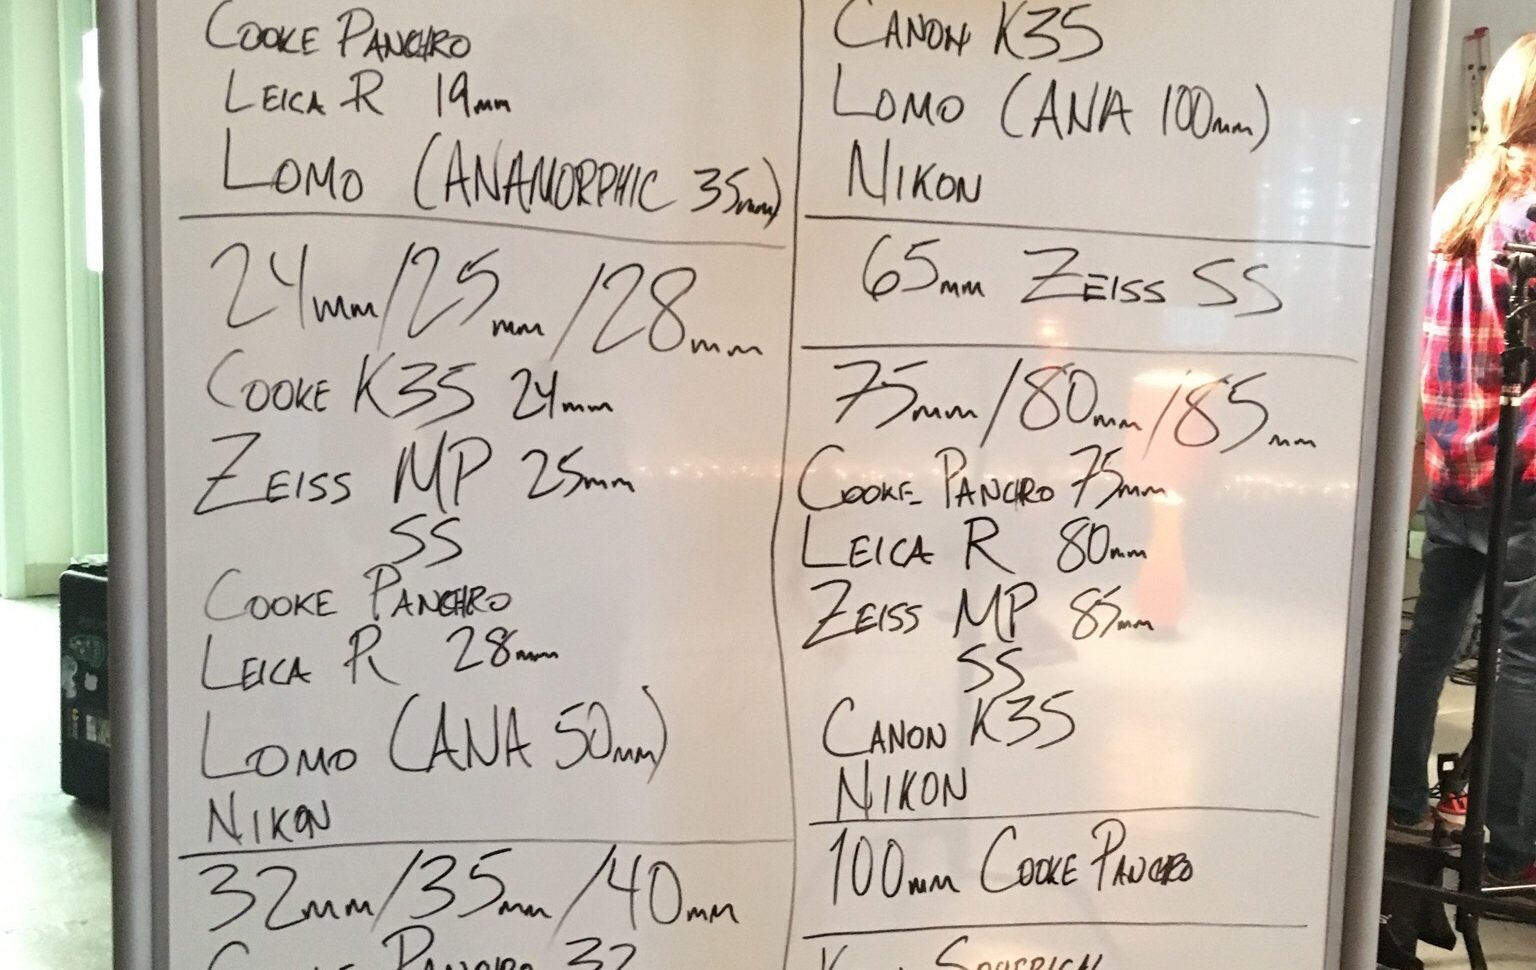 COOKE PANCHRO
LEICA R 19mm
LOMO (ANAMORPHIC 35mm)
24mm/25mm/28mm
COOKE K35 24mm
ZEISS MP 25mm
SS
COOKE PANCHRO
LEICA R 28mm
LOMO (ANA 50mm)
NIKON
32mm/35mm/40mm
COOKE PANCHRO 32
CANON K35
LOMO (ANA 100mm)
NIKON
65mm ZEISS SS
75mm/80mm/85mm
COOKE PANCHRO 75mm
LEICA R 80mm
ZEISS MP 85mm
SS
CANON K35
NIKON
100mm COOKE PANCHRO
SPHERICAL